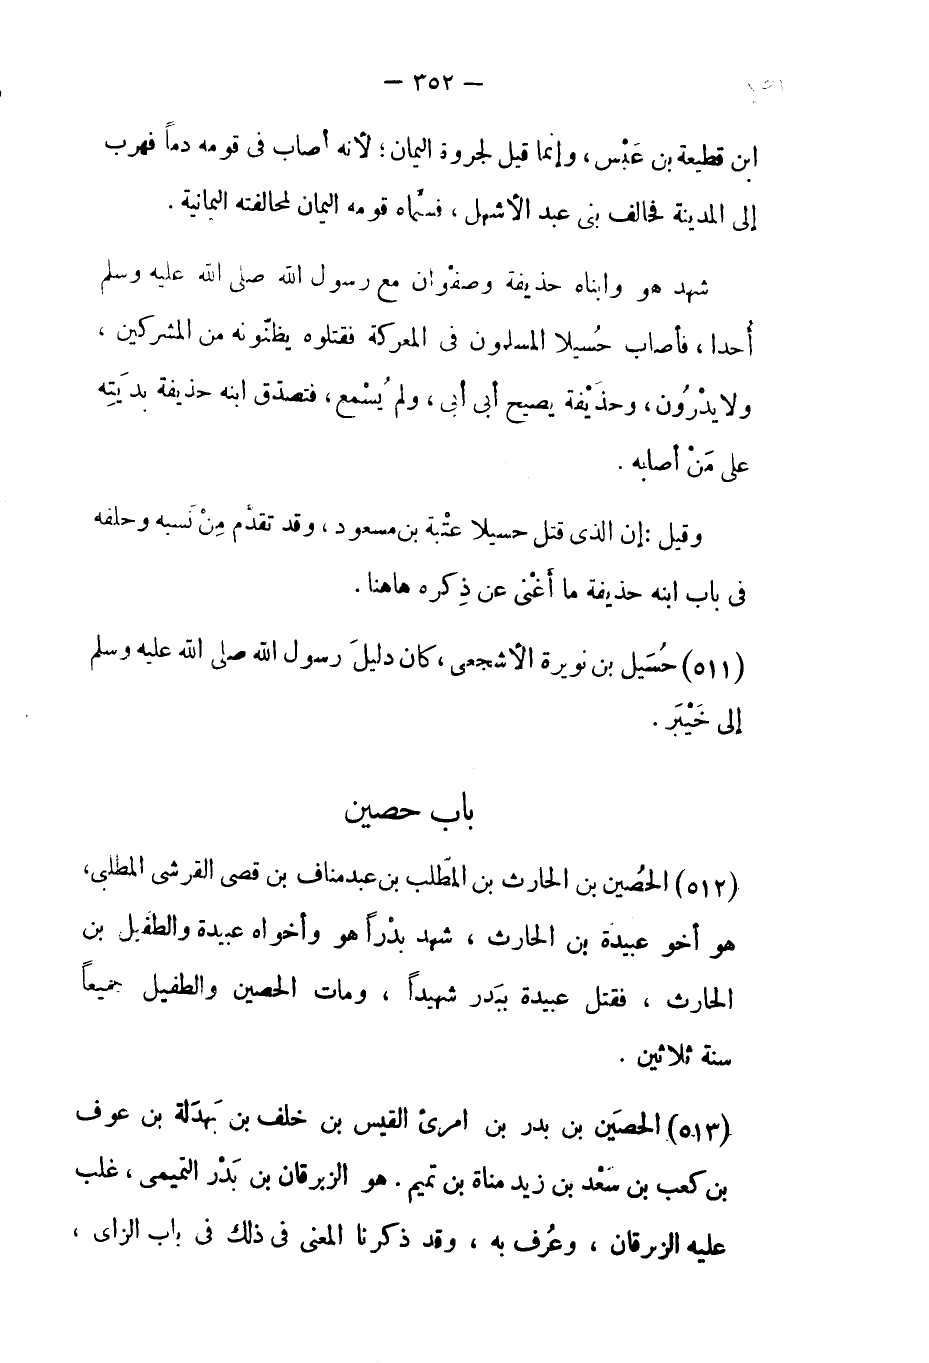 — ٣٥٢ —
ابن قطيعة بن عَبْس، وإنما قيل لجروة اليمان؛ لأنه أصاب فى قومه دماً فهرب
إلى المدينة فحالف بنى عبد الأشهل ، فسمَّاه قومه اليمان لمحالفته اليمانية .
شهد هو وابناه حذيفة وصفْوان مع رسول الله صلى الله عليه وسلم
أُحدا ، فأصاب حُسيلا المسلمون فى المعركة فقتلوه يظنّونه من المشركين ،
ولا يدْرُون، وحذَيْفة يصيح أبى أبى ، ولم يُسْمع، فتصدّق ابنه حذيفة بديَتِه
على مَنْ أصابه .
وقيل : إن الذى قتل حسيلا عتْبة بن مسعود ، وقد تقدَّم مِنْ نَسبه وحلفه
فى باب ابنه حذيفة ما أَغْنى عن ذِكره هاهنا .
(٥١١) حُسَيل بن نويرة الأشجعى ، كان دليلَ رسول الله صلى الله عليه وسلم
إلى خَيْبَر .
باب حصين
(٥١٢) الحُصين بن الحارث بن المطَّلب بن عبد مناف بن قصى القرشى المطلبى،
هو أخو عبيدة بن الحارث ، شهد بدْراً هو وأخواه عبيدة والطفَيل بن
الحارث ، فقتل عبيدة ببَدر شهيداً ، ومات الحصين والطفيل جميعاً
سنة ثلاثين .
(٥١٣) الحصَين بن بدر بن امرئ القيس بن خلف بن بَهدَلة بن عوف
بن كعب بن سَعْد بن زيد مناة بن تميم . هو الزبرقان بن بَدْر التميمى ، غلب
عليه الزبرقان ، وعُرف به ، وقد ذكرنا المعنى فى ذلك فى باب الزاى ،